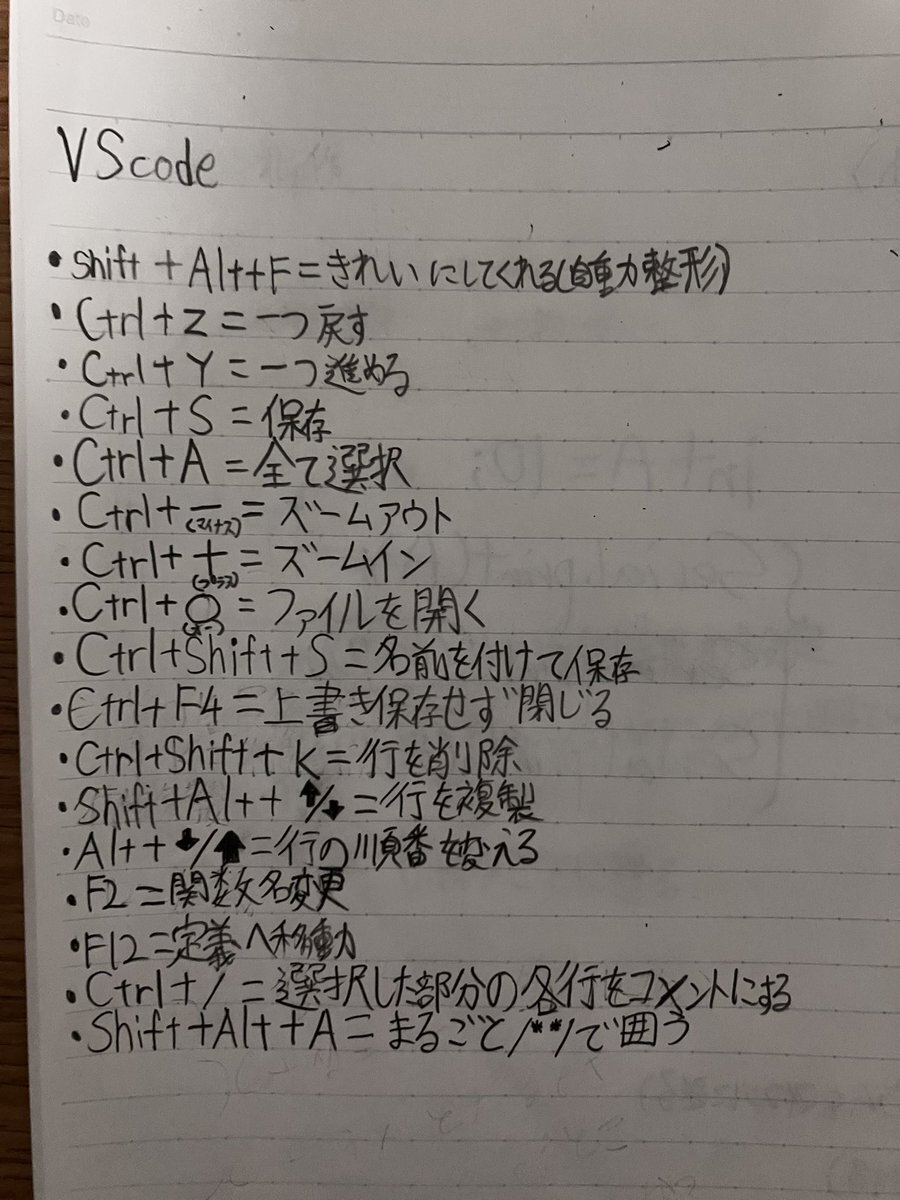 Date
VScode
・shift+Alt+F=きれいにしてくれる(自動整形)
・Ctrl+Z=一つ戻す
・Ctrl+Y=一つ進める
・Ctrl+S=保存
・Ctrl+A=全て選択
・Ctrl+－(マイナス)=ズームアウト
・Ctrl++(プラス)=ズームイン
・Ctrl+O(オー)=ファイルを開く
・Ctrl+Shift+S=名前を付けて保存
・Ctrl+F4=上書き保存せず閉じる
・Ctrl+Shift+K=行を削除
・Shift+Alt+↑/↓=行を複製
・Alt+↓/↑=行の順番を変える
・F2=関数名変更
・F12=定義へ移動
・Ctrl+/=選択した部分の各行をコメントにする
・Shift+Alt+A=まるごと/**/で囲う